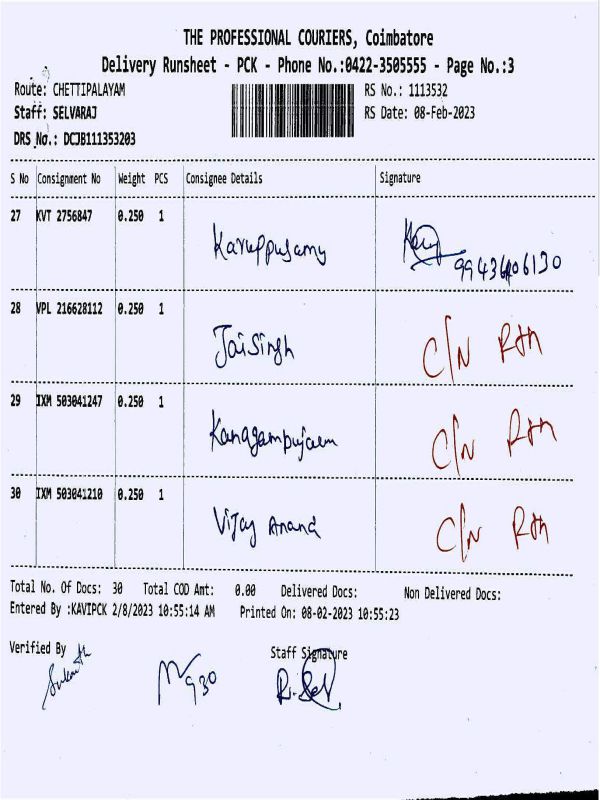 THE PROFESSIONAL COURIERS, Coimbatore
Delivery Runsheet - PCK - Phone No.:0422-3505555 - Page No.:3
Route: CHETTIPALAYAM RS No.: 1113532
Staff: SELVARAJ RS Date: 08-Feb-2023
DRS No.: DCJB111353203
S No Consignment No Weight PCS Consignee Details Signature
27 KVT 2756847 0.250 1 Karuppusamy
28 VPL 216628112 0.250 1 Jaisingh C/N Rtn
29 IXM 503041247 0.250 1 C/N Rtn
30 IXM 503041210 0.250 1 Vijay Anand C/N Rtn
Total No. Of Docs: 30 Total COD Amt: 0.00 Delivered Docs: Non Delivered Docs:
Entered By :KAVIPCK 2/8/2023 10:55:14 AM Printed On: 08-02-2023 10:55:23
Verified By Staff Signature